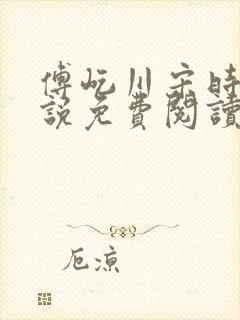 傅屹川宋時
說免費閱讀
厄凉